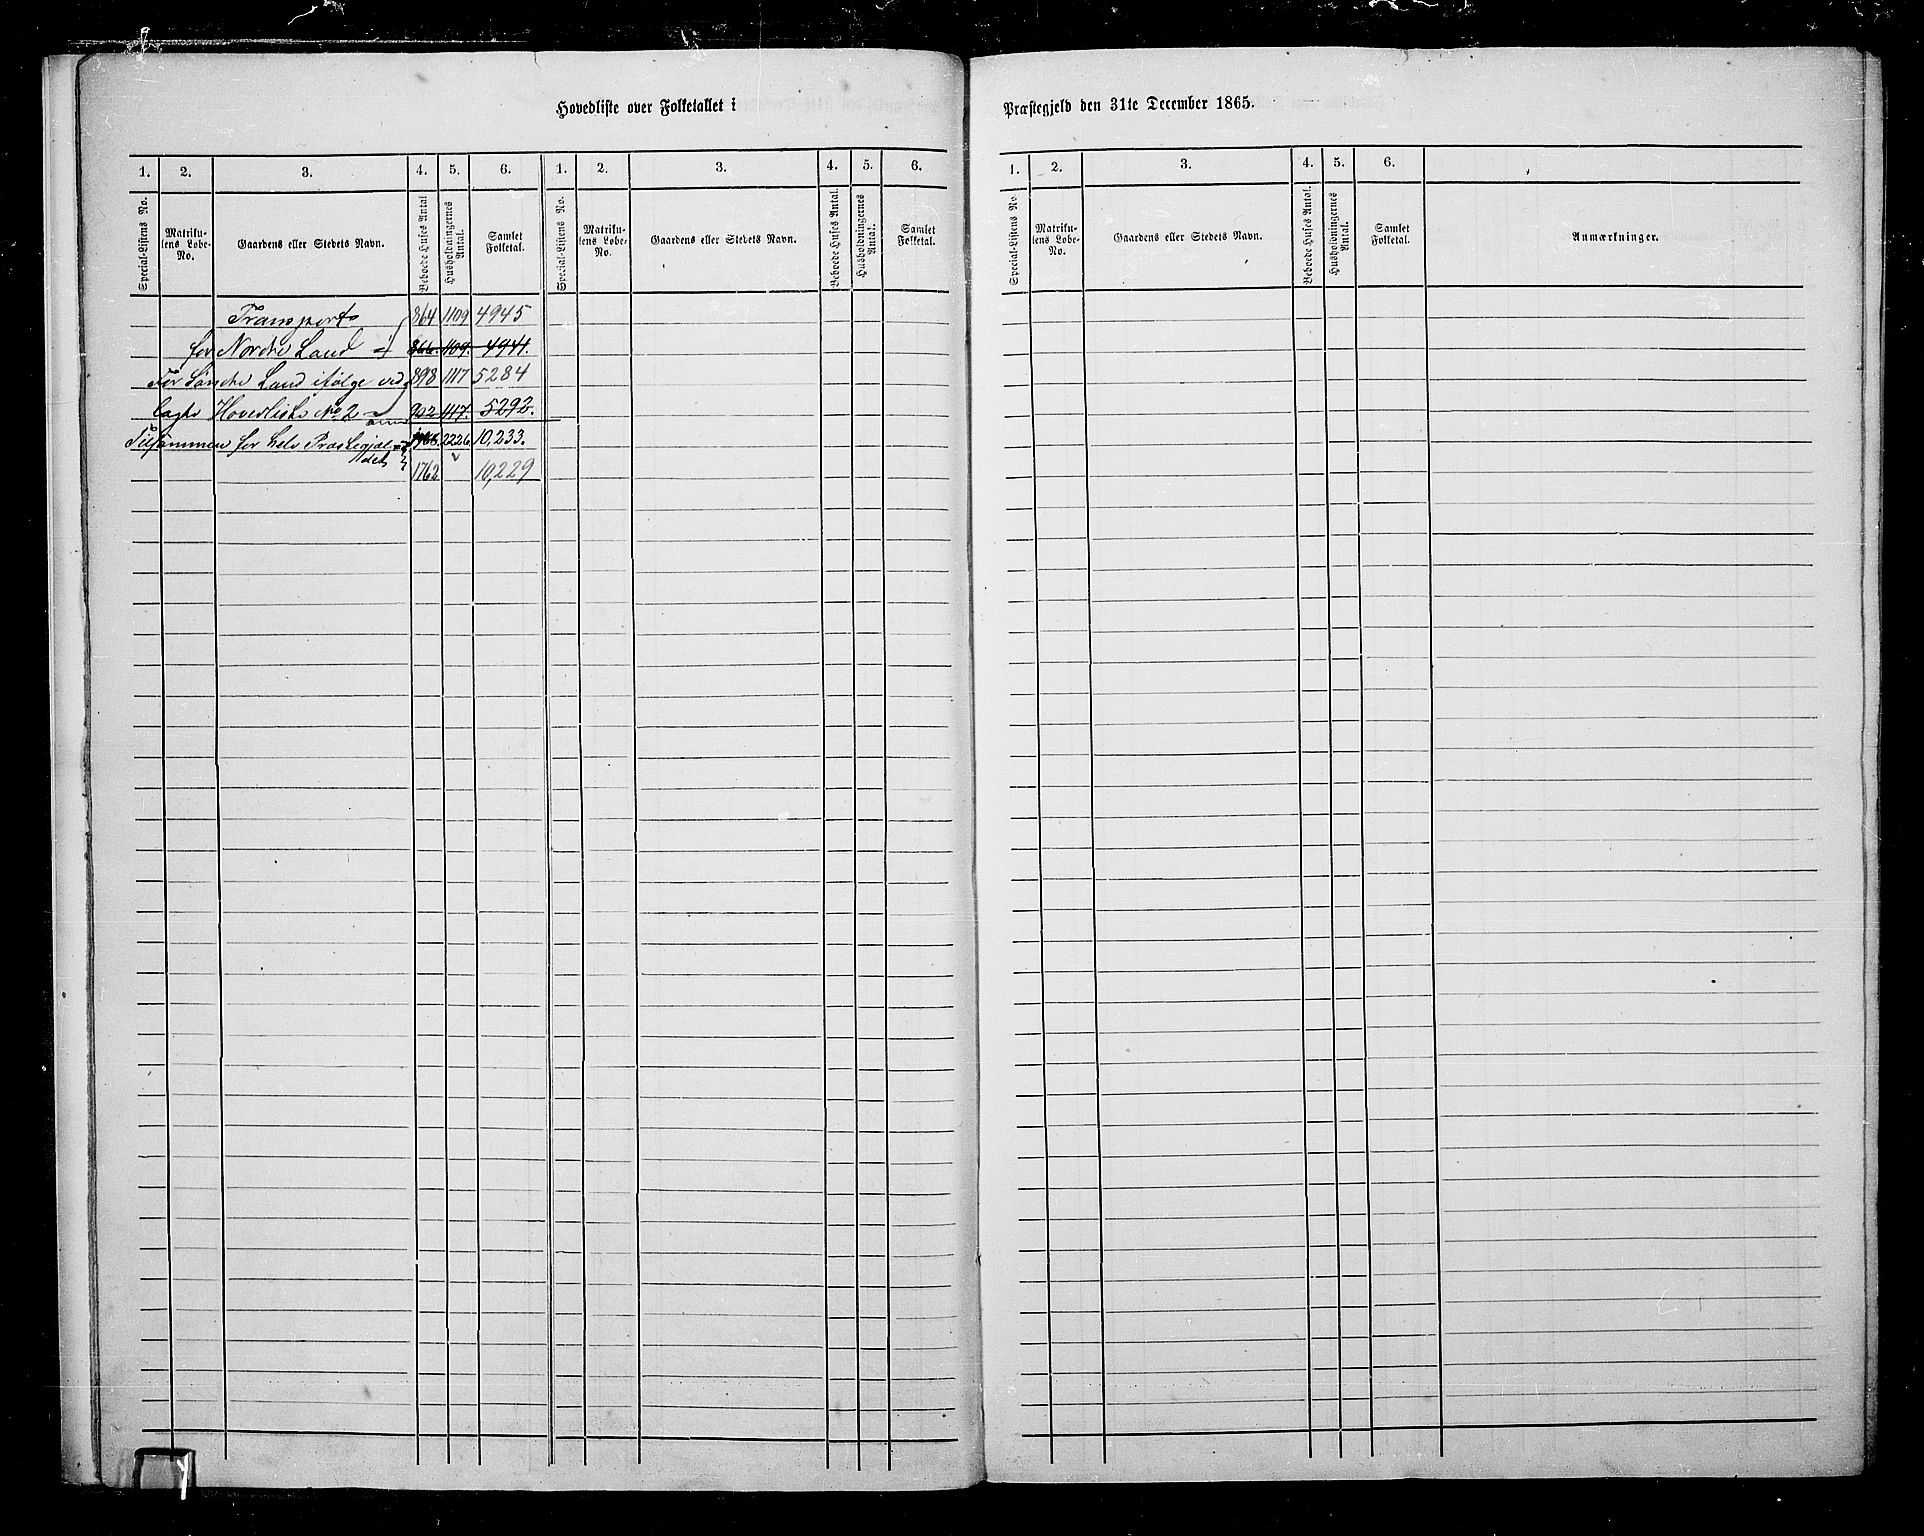 Hovedliste over Folketallet i
1. 2. 3. 4. 5. 6. 1. 2. 3. 4. 5. 6.
Special-Listens No. Matrikulens Løbe-No. Gaardens eller Stedets Navn. Beboede Huses Antal. Husholdningernes Antal. Samlet Folketal. Special-Listens No. Matrikulens Løbe-No. Gaardens eller Stedets Navn. Beboede Huses Antal. Husholdningernes Antal. Samlet Folketal.
Transport 864 1109 4945
for Nordre Land 866. 1109. 4941.
For Søndre Land ifølge ved 898 1117 5284
lagte Hovedliste No 2 902 1117. 5292.
Tilsammen for hele Præstegjæl= 1768. 2226. 10,233.
det 1762 10,229
Præstegjeld den 31te December 1865.
1. 2. 3. 4. 5. 6.
Special-Listens No. Matrikulens Løbe-No. Gaardens eller Stedets Navn. Beboede Huses Antal. Husholdningernes Antal. Samlet Folketal. Anmærkninger.